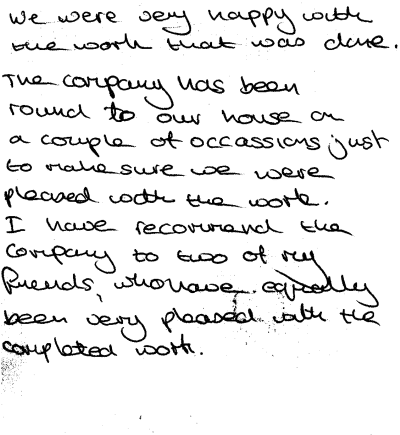 We were very happy with
the work that was done.
The company has been
round to our house on
a couple of occassions just
to make sure we were
pleased with the work.
I have recommend the
company to two of my
friends, who have equally
been very pleased with the
completed work.